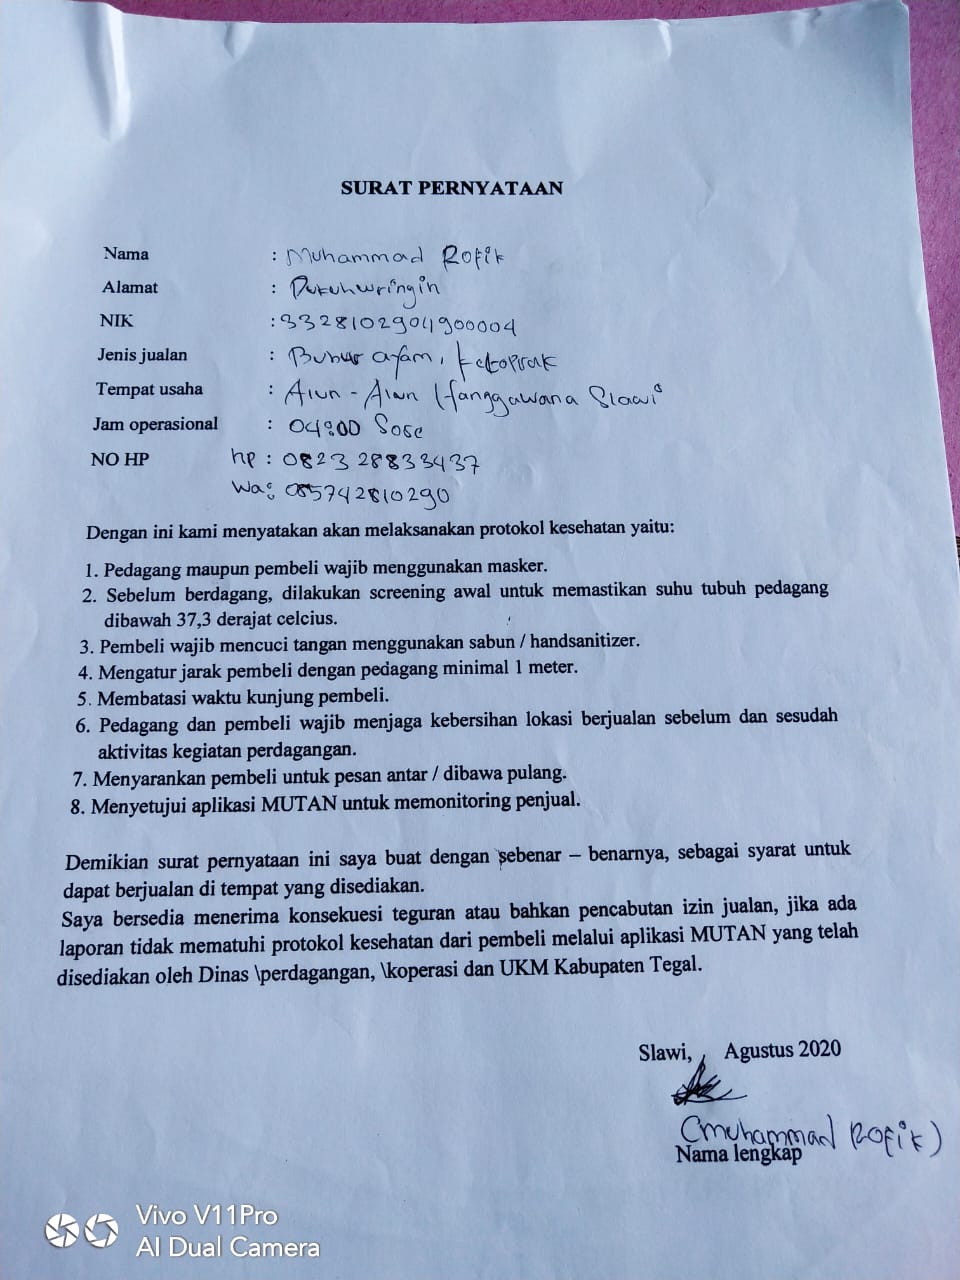 SURAT PERNYATAAN
Nama : Muhammad Rofik
Alamat : Dukuhwringin
NIK : 3328102904900004
Jenis jualan : Bubur ayam, ketoprak
Tempat usaha : Alun - Alun Hanggawana Slawi
Jam operasional : 04:00 Sore
NO HP hp : 082328833437
Wa: 085742810290
Dengan ini kami menyatakan akan melaksanakan protokol kesehatan yaitu:
1. Pedagang maupun pembeli wajib menggunakan masker.
2. Sebelum berdagang, dilakukan screening awal untuk memastikan suhu tubuh pedagang
dibawah 37,3 derajat celcius.
3. Pembeli wajib mencuci tangan menggunakan sabun / handsanitizer.
4. Mengatur jarak pembeli dengan pedagang minimal 1 meter.
5. Membatasi waktu kunjung pembeli.
6. Pedagang dan pembeli wajib menjaga kebersihan lokasi berjualan sebelum dan sesudah
aktivitas kegiatan perdagangan.
7. Menyarankan pembeli untuk pesan antar / dibawa pulang.
8. Menyetujui aplikasi MUTAN untuk memonitoring penjual.
Demikian surat pernyataan ini saya buat dengan sebenar – benarnya, sebagai syarat untuk
dapat berjualan di tempat yang disediakan.
Saya bersedia menerima konsekuesi teguran atau bahkan pencabutan izin jualan, jika ada
laporan tidak mematuhi protokol kesehatan dari pembeli melalui aplikasi MUTAN yang telah
disediakan oleh Dinas \perdagangan, \koperasi dan UKM Kabupaten Tegal.
Slawi, Agustus 2020
(Muhammad Rofik)
Nama lengkap
Vivo V11Pro
AI Dual Camera